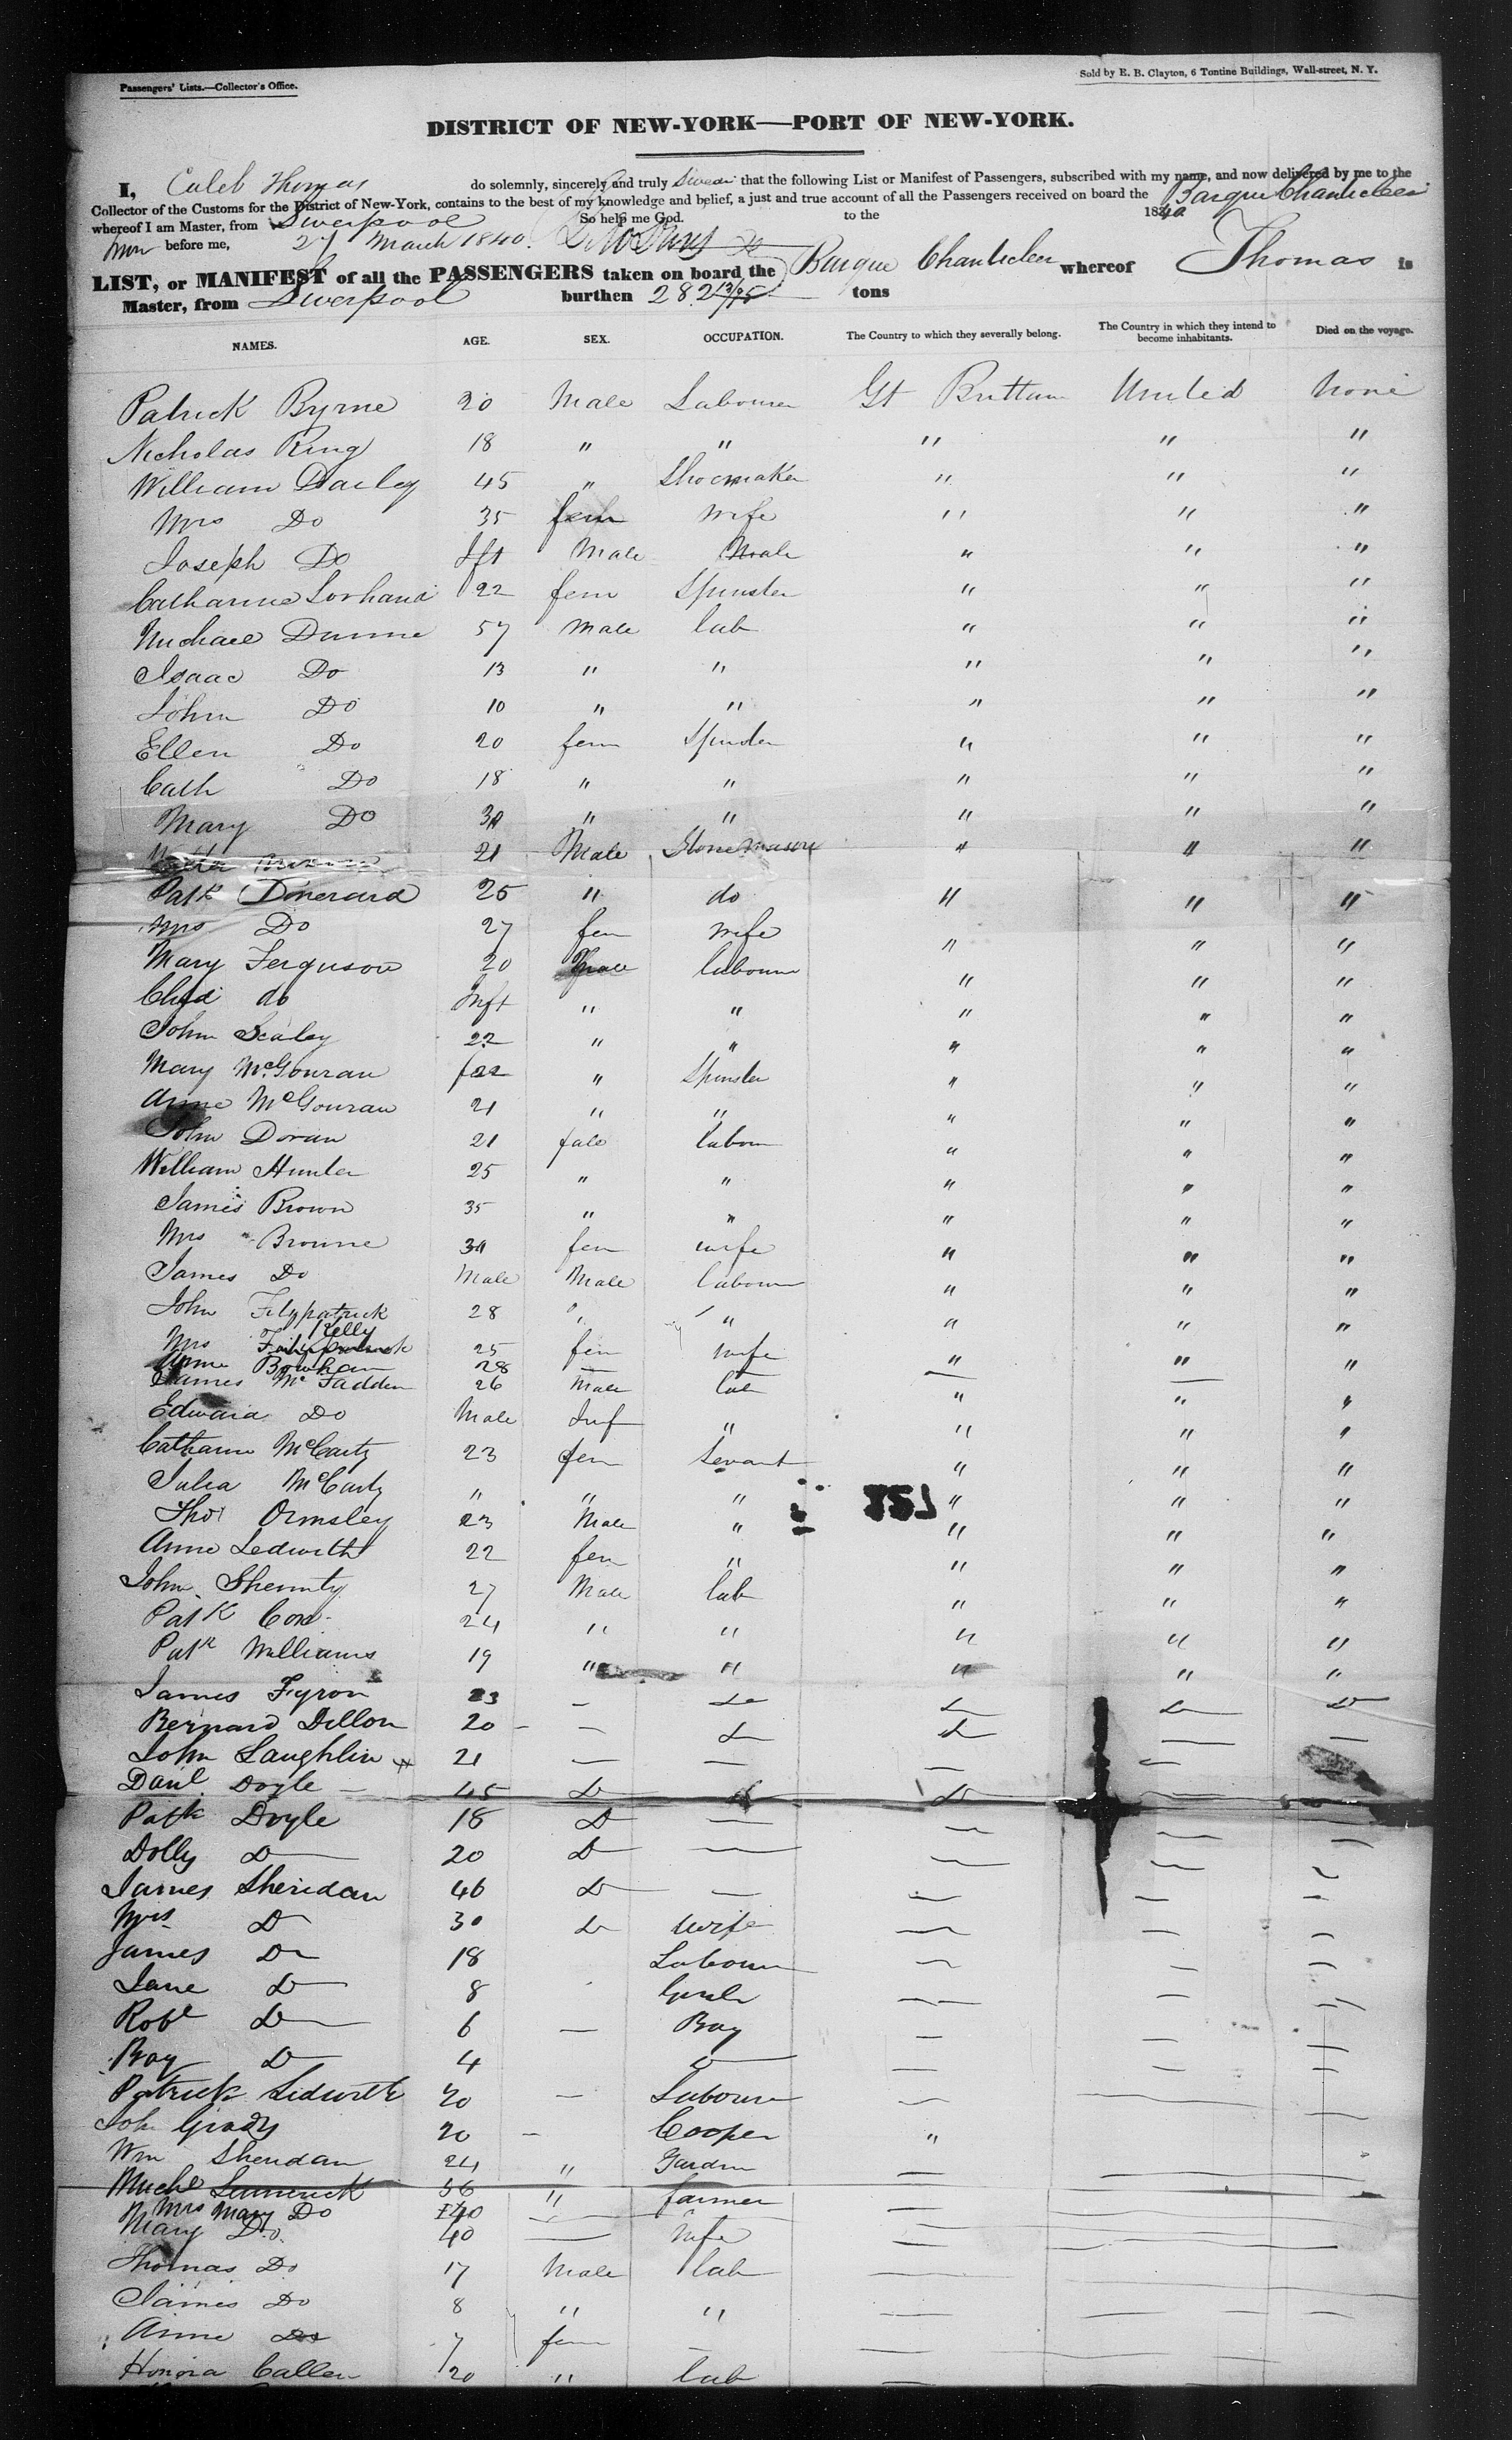 Passengers' Lists.—Collector's Office.
Sold by E. B. Clayton, 6 Tontine Buildings, Wall-street, N. Y.
DISTRICT OF NEW-YORK—PORT OF NEW-YORK.
I, Caleb Thomas do solemnly, sincerely and truly swear that the following List or Manifest of Passengers, subscribed with my name, and now delivered by me to the
Collector of the Customs for the District of New-York, contains to the best of my knowledge and belief, a just and true account of all the Passengers received on board the Barque Chanticleer
whereof I am Master, from Liverpool So help me God. to the 1840
before me, 27 March 1840.
LIST, or MANIFEST of all the PASSENGERS taken on board the Barque Chanticleer whereof Thomas is
Master, from Liverpool burthen 282 13/95 tons
NAMES. AGE. SEX. OCCUPATION. The Country to which they severally belong. The Country in which they intend to become inhabitants. Died on the voyage.
Patrick Byrne 20 Male Labourer Gt Brittain United None
Nicholas Ring 18 " " " " "
William Dailey 45 " Shoemaker " " "
Mrs Do 35 fem wife " " "
Joseph Do Ift Male Male " " "
Catharine 22 fem Spinster " " "
Michael Dunne 57 male lab " " "
Isaac Do 13 " " " " "
John Do 10 " " " " "
Ellen Do 20 fem Spinster " " "
Cath Do 18 " " " " "
Mary Do 30 " " " " "
21 Male Stone mason " " "
Patk Donerard 25 " do " " "
Mrs Do 27 fem wife " " "
Mary Ferguson 20 Male labourer " " "
Child do Inft " " " " "
John Scaley 22 " " " " "
Mary McGouran 22 " Spinster " " "
Anne McGouran 21 " " " " "
John Doran 21 labour " " "
William Hunter 25 " " " " "
James Brown 35 " " " " "
Mrs Browne 30 fem wife " " "
James Do Male Male labourer " " "
John Fitzpatrick 28 " " " " "
Kelly
Mrs Fitzpatrick 25 fem wife " " "
Anne Bowhan 28 — — — —
James McFadden 26 Male lab " " "
Edward Do Male Inf " " " "
Catharine McCarty 23 fem Servant " " "
Julia McCarty " " " " " "
Thos Ormsley 23 Male " " " "
Anne Ledwith 22 fem " " " "
John Shennty 27 Male lab " " "
Patk Cox 24 " " " " "
Patk Williams 19 " " " " "
James Fyron 23 — Do Do Do Do
Bernard Dillon 20 — Do Do — —
John Laughlin 21 — — — —
Danl Doyle 45 Do Do Do
Patk Doyle 18 Do — — — —
Dolly Do 20 Do — — — —
James Sheridan 46 Do — — — —
Mrs Do 30 Do wife — — —
James Do 18 Labourer — — —
Jane Do 8 — — —
Robt Do 6 — Boy — — —
Boy Do 4 Do — — —
Patrick Ledwith 20 — Labourer — — —
John Grady 20 — Cooper "
Wm Sheridan 24 " — — —
Michl Limerick 56 " farmer — — —
Mrs Mary Do 40 — — — —
Mary Do 40 — wife — — —
Thomas Do 17 Male lab — — —
James Do 8 " " — — —
Anne Do 7 fem — — —
Honora Callen 20 " lab — — —